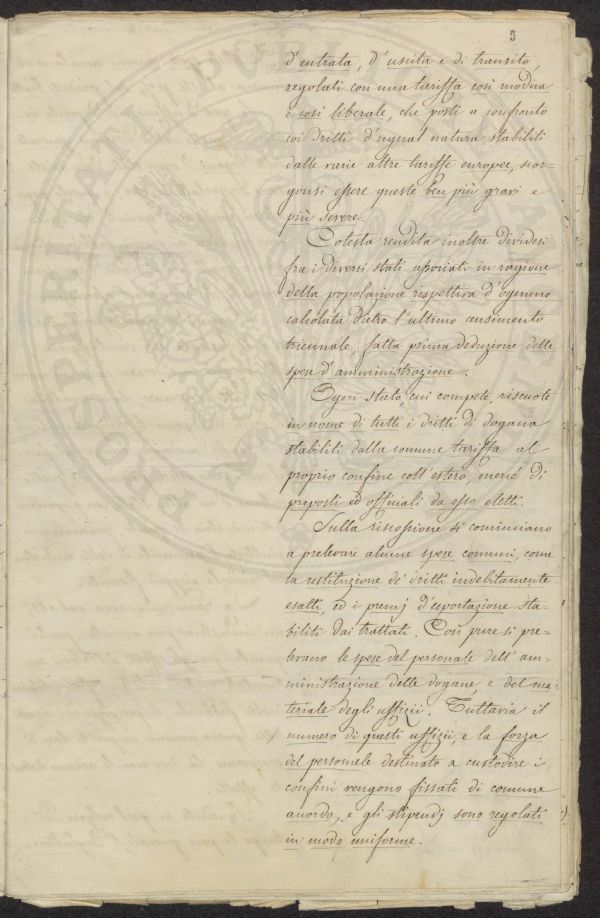 5
d'entrata, d'usuita e di transito,
regolati con una tariffa così modica
e così liberale, che posti a confronto
coi dritti d'ugual natura stabiliti
dalle varie altre tariffe europee, scor=
gonsi essere queste ben più gravi e
più severe.
Cotesta rendita inoltre dividesi
fra i diversi stati associati in ragione
della popolazione rispettiva d'ognuno
calcolata dietro l'ultimo censimento
triennale, fatta prima deduzione delle
spese d'amministrazione.
Ogni stato, cui compete, riscuote
in nome di tutti i dritti di dogana
stabiliti dalla comune tariffa al
proprio confine coll'estero, mercé di
preposti ed officiali da esso eletti.
Sulla riscossione si cominciano
a prelevare alcune spese comuni, come
la restituzione de' dritti indebitamente
esatti, ed i premj d'esportazione sta=
biliti dai trattati. Così pure si pre=
levano le spese del personale dell'am=
ministrazione delle dogane, e del ma=
teriale degli uffizii. Tuttavia il
numero di questi uffizii, e la forza
del personale destinato a custodire i
confini vengono fissati di comune
accordo, e gli stipendj sono regolati
in modo uniforme.
PROSPERITATI PUBLICAE